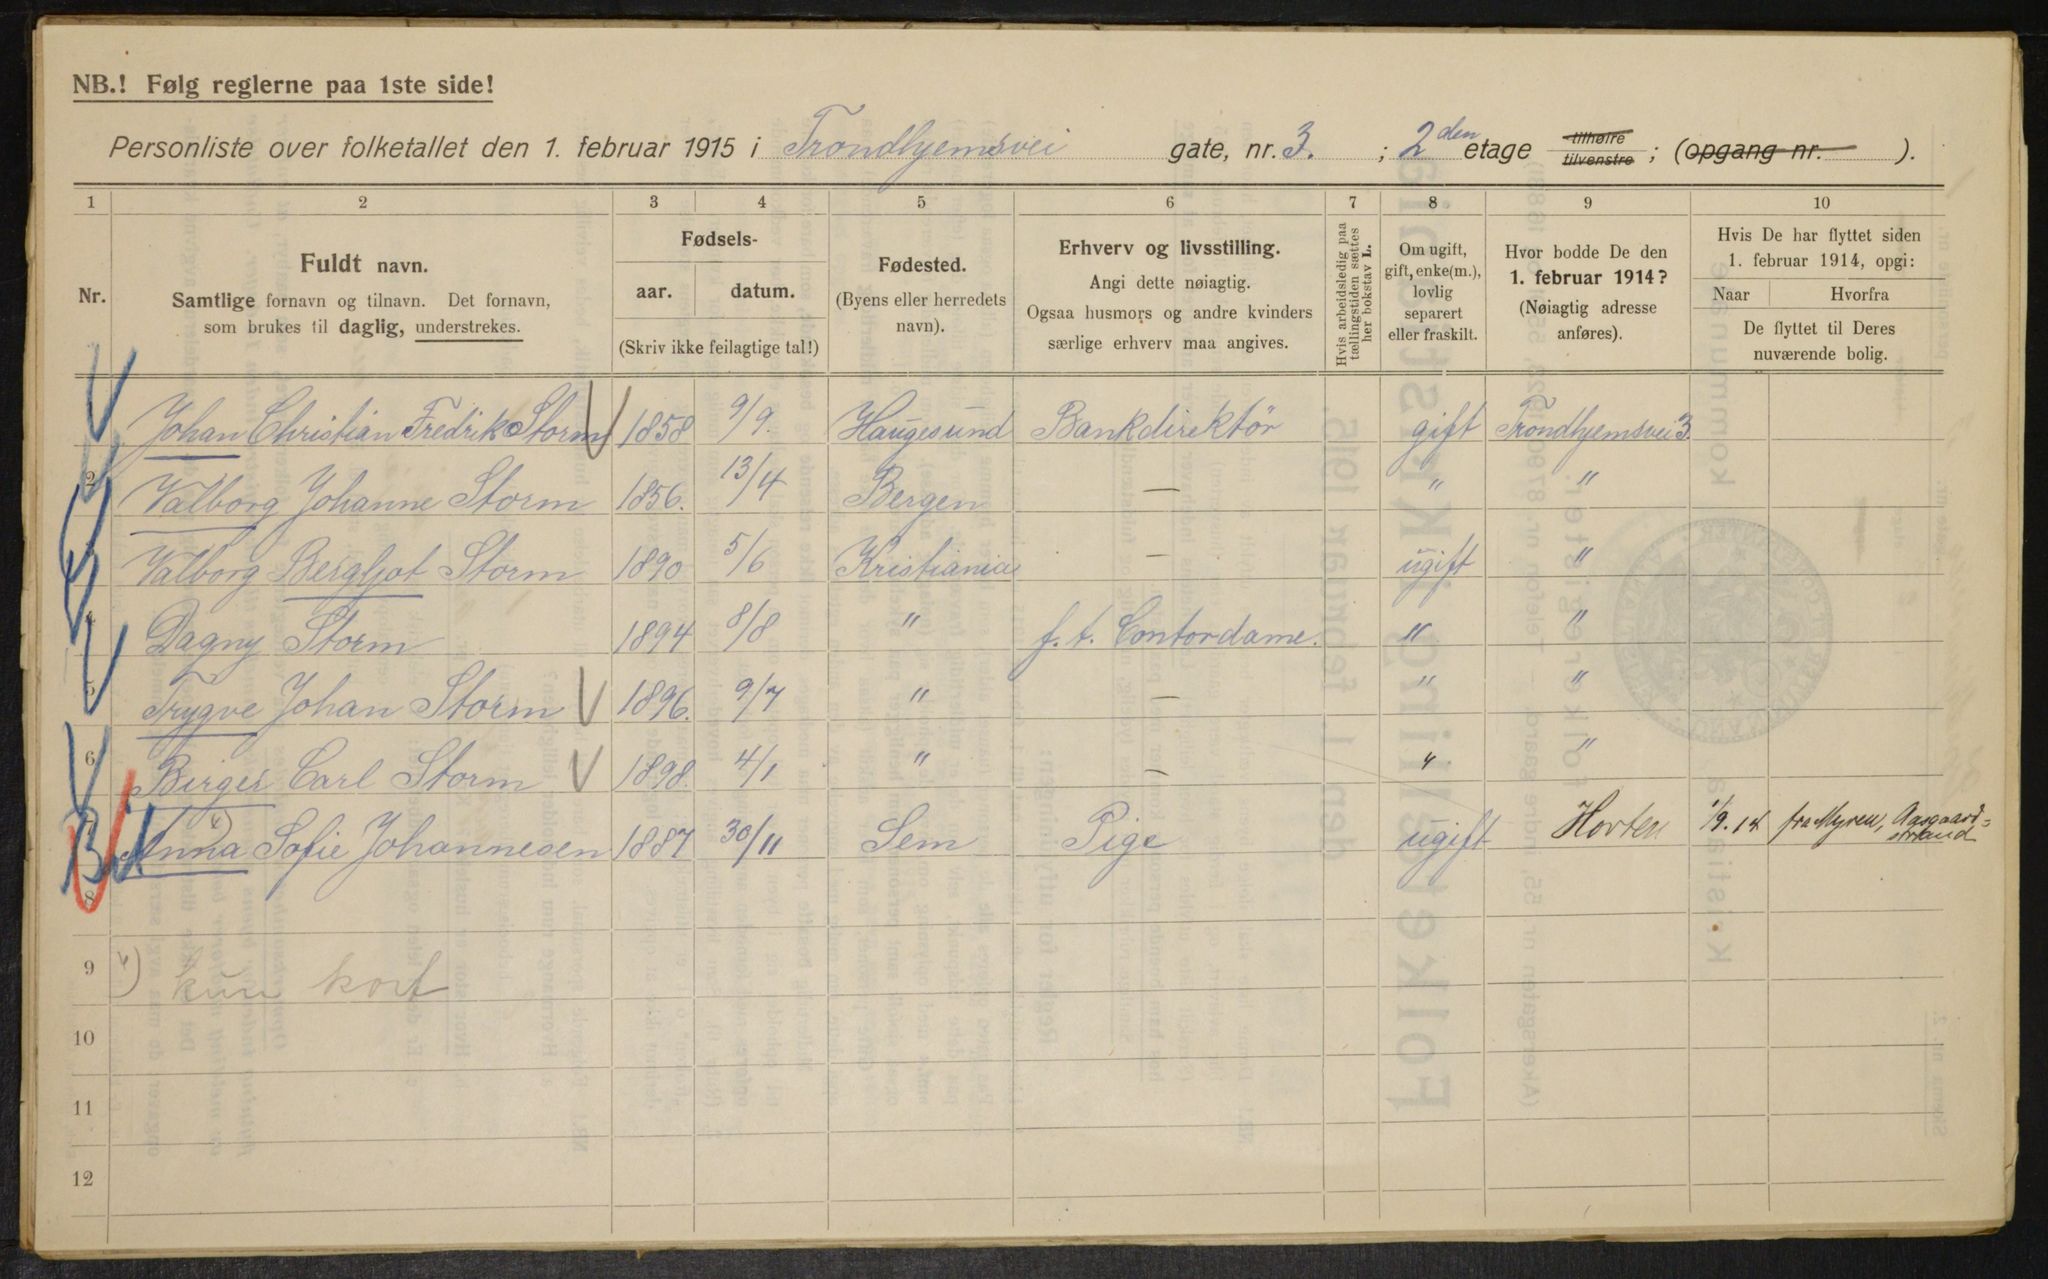 NB.! Følg reglerne paa 1ste side!
Personliste over folketallet den 1. februar 1915 i Trondhjemsvei gate, nr. 3. ; 2den etage tilhøire tilvenstre ; (opgang nr. ).
1 2 3 4 5 6 7 8 9 10
Nr.
Fuldt navn.
Samtlige fornavn og tilnavn. Det fornavn,
som brukes til daglig, understrekes.
Fødsels-
aar. datum.
(Skriv ikke feilagtige tal!)
Fødested.
(Byens eller herredets
navn).
Erhverv og livsstilling.
Angi dette nøiagtig.
Ogsaa husmors og andre kvinders
særlige erhverv maa angives.
Hvis arbeidsledig paa
tællingstiden sættes
her bokstav L.
Om ugift,
gift, enke(m.),
lovlig
separert
eller fraskilt.
Hvor bodde De den
1. februar 1914?
(Nøiagtig adresse
anføres).
Hvis De har flyttet siden
1. februar 1914, opgi:
Naar Hvorfra
De flyttet til Deres
nuværende bolig.
Johan Christian Fredrik Storm 1858 9/9. Haugesund Bankdirektör gift Trondhjemsvei 3.
2 Valborg Johanne Storm 1856. 13/4 Bergen — " "
Valborg Bergljot Storm 1890 5/6 Kristiania — ugift "
4 Dagny Storm 1894 8/8 " f. t. Contordame. " "
5 Trygve Johan Storm 1896. 9/7 " — " "
6 Birger Carl Storm 1898. 4/1 " — " "
7 Anna Sofie Johannesen 1887 30/11 Sem Pige ugift Horten 1/9.14 fra Myren, Aasgaard=
strand
8
9 kun kort
10
11
12